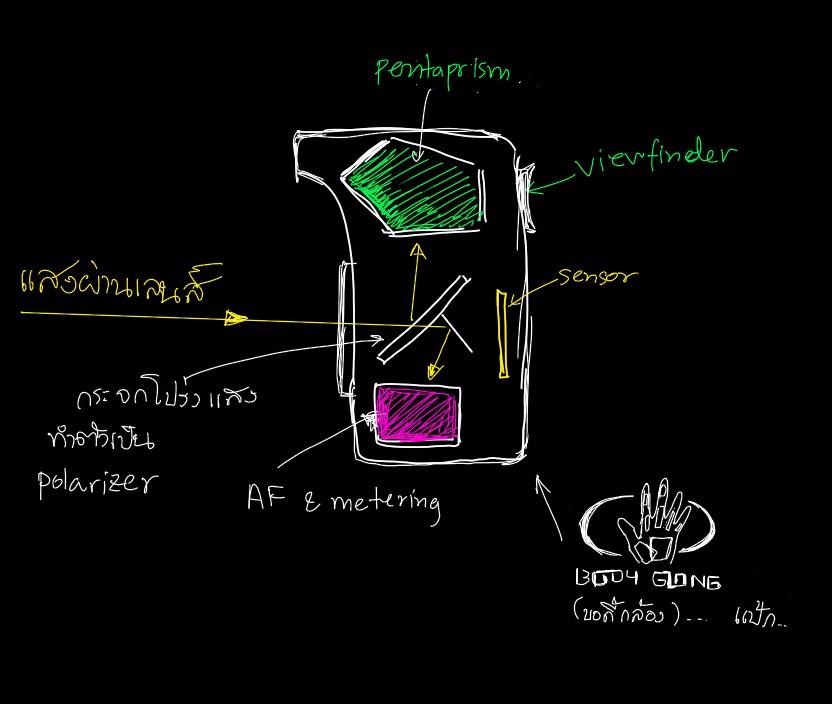 pentaprism
viewfinder
แสงผ่านเลนส์
sensor
กระจกโปร่งแสง
ทำตัวเป็น
polarizer
AF & metering
BODY GLONG
(บอดี้กล้อง)... แป้ก..